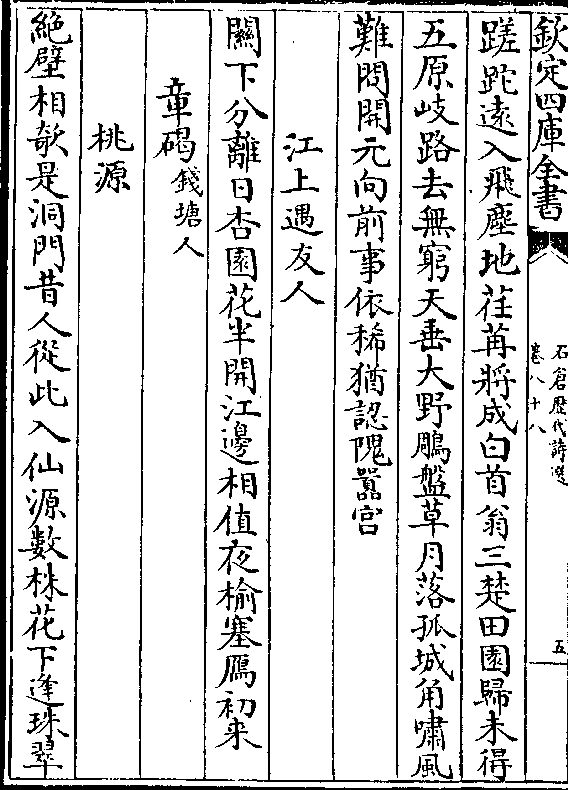 欽定四庫全書
石倉歴代詩選
卷八十八
五
蹉跎遠入飛塵地荏苒將成白首翁三楚田園歸未得
五原岐路去無窮天垂大野鵰盤草月落孤城角嘯風
難問開元向前事依稀猶認隗囂宫
江上遇友人
闗下分離日杏園花半開江邊相值夜榆塞鴈初来
章碣錢塘人
桃源
絶壁相欹是洞門昔人從此入仙源數株花下逢珠翠